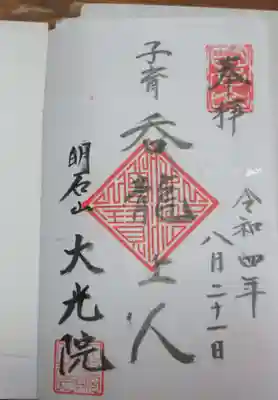 奉拝
令和四年
八月二十一日
子育 呑龍上人
明石山 大光院